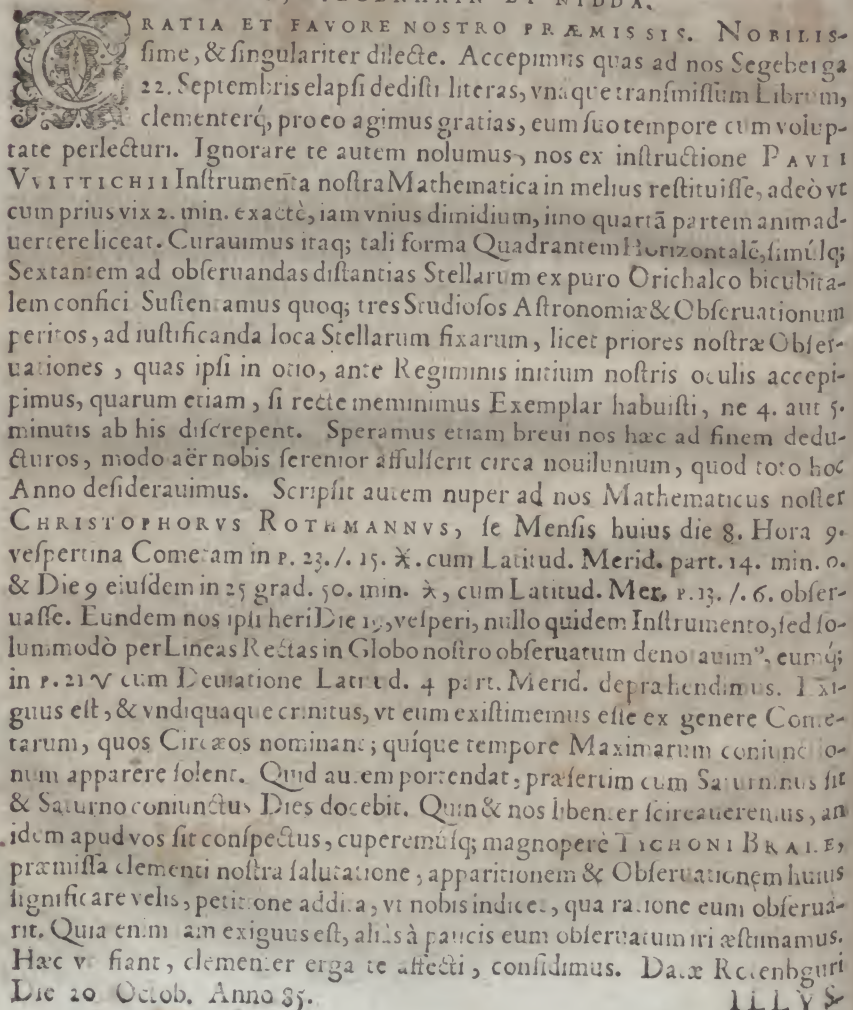 GRATIA ET FAVORE NOSTRO PRÆMISSIS. NOBILIS-
ſime, & ſingulariter dilecte. Accepimus quas ad nos Segeberga
22. Septembris elapſi dediſti literas, vnaque tranſmiſſum Librum,
clementerq́, pro eo agimus gratias, eum ſuo tempore cum volup-
tate perlecturi. Ignorare te autem nolumus, nos ex inſtructione PAVII
VVITTICHII Inſtrumenta noſtra Mathematica in melius reſtituiſſe, adeò vt
cum prius vix 2. min. exactè, iam vnius dimidium, imo quartā partem animad-
uertere liceat. Curauimus itaq; tali forma Quadrantem Horizontalē, ſimúlq;
Sextantem ad obſeruandas diſtantias Stellarum ex puro Orichalco bicubita-
lem confici Suſtentamus quoq; tres Studioſos Aſtronomiæ & Obſeruationum
peritos, ad iuſtificanda loca Stellarum fixarum, licet priores noſtræ Obſer-
uationes, quas ipſi in otio, ante Regiminis initium noſtris oculis accepi-
pimus, quarum etiam, ſi recte meminimus Exemplar habuiſti, ne 4. aut 5.
minutis ab his diſcrepent. Speramus etiam breui nos hæc ad finem dedu-
cturos, modo aër nobis ſerenior affulſerit circa nouilunium, quod toto hoc
Anno deſiderauimus. Scripſit autem nuper ad nos Mathematicus noſter
CHRISTOPHORVS ROTHMANNVS, ſe Menſis huius die 8. Hora 9.
veſpertina Cometam in P. 23./. 15. ♓. cum Latitud. Merid. part. 14. min. 0.
& Die 9 eiuſdem in 25 grad. 50. min. ♓, cum Latitud. Mer. P. 13. /. 6. obſer-
uaſſe. Eundem nos ipſi heri Die 19, veſperi, nullo quidem Inſtrumento, ſed ſo-
lummodò per Lineas Rectas in Globo noſtro obſeruatum denotauim⁹, eumq́;
in P. 21 ♈ cum Deuiatione Latitud. 4 part. Merid. deprahendimus. Exi-
guus eſt, & vndiquaque crinitus, vt eum exiſtimemus eſſe ex genere Come-
tarum, quos Circæos nominant; quíque tempore Maximarum coniunctio-
num apparere ſolent. Quid autem portendat, præſertim cum Saturninus ſit
& Saturno coniunctus Dies docebit. Quin & nos libenter ſcire aueremus, an
idem apud vos ſit conſpectus, cuperemúſq; magnoperè TICHONI BRAHE,
præmiſſa clementi noſtra ſalutatione, apparitionem & Obſeruationem huius
ſignificare velis, petitione addita, vt nobis indicet, qua ratione eum obſerua-
rit. Quia enim tam exiguus eſt, aliàs à paucis eum obſeruatum iri æſtimamus.
Hæc vt fiant, clementer erga te affecti, confidimus. Datæ Rotenbguri
Die 20 Octob. Anno 85.
ILLVS-